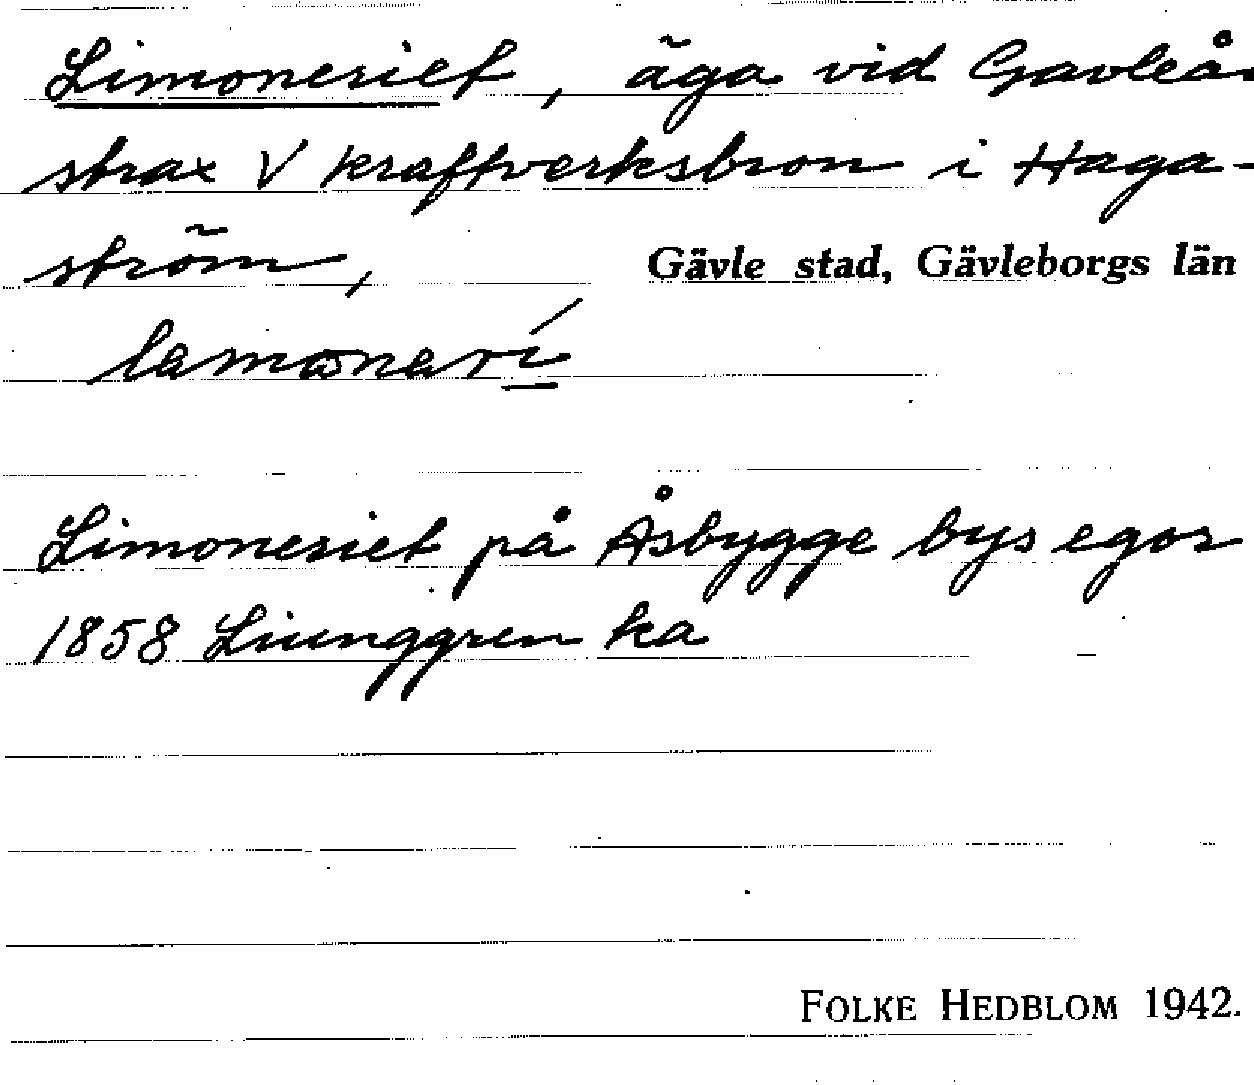 Limoneriet, äga vid Gavleån
strax V kraftverksbron i Haga-
ström,
Gävle stad, Gävleborgs län
lamɷnarí
Limoneriet på Åsbygge bys egor
1858 Liunggren ka
FOLKE HEDBLOM 1942.